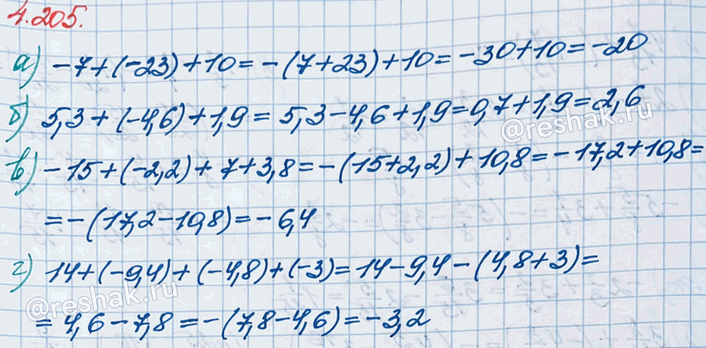 4.205.
а) -7+(-23)+10=-(7+23)+10=-30+10=-20
б) 5,3+(-4,6)+1,9=5,3-4,6+1,9=0,7+1,9=2,6
в) -15+(-2,2)+7+3,8=-(15+2,2)+10,8=-17,2+10,8=
=-(17,2-10,8)=-6,4
г) 14+(-9,4)+(-4,8)+(-3)=14-9,4-(4,8+3)=
=4,6-7,8=-(7,8-4,6)=-3,2
@reshak.ru
@reshak.ru
@reshak.ru